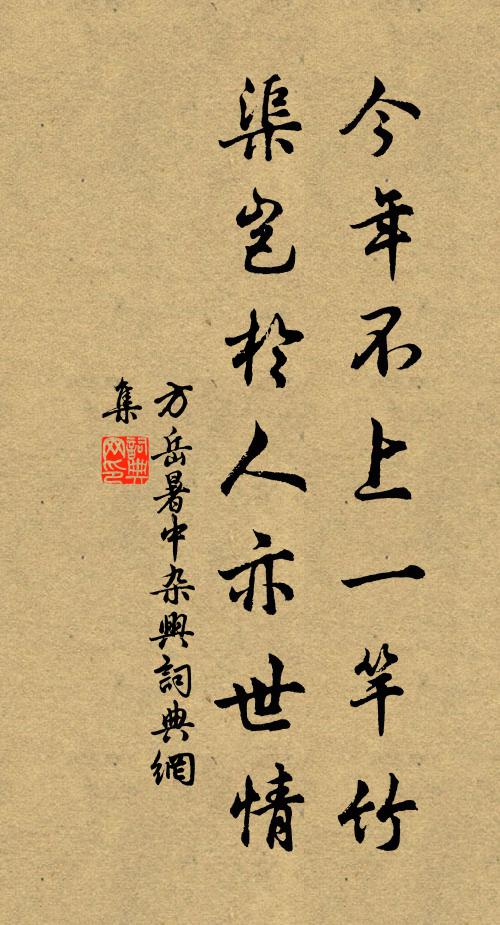 今年不上一竿竹
渠岂於人亦世情
方岳暑中杂興詞典網
集
詞典网印